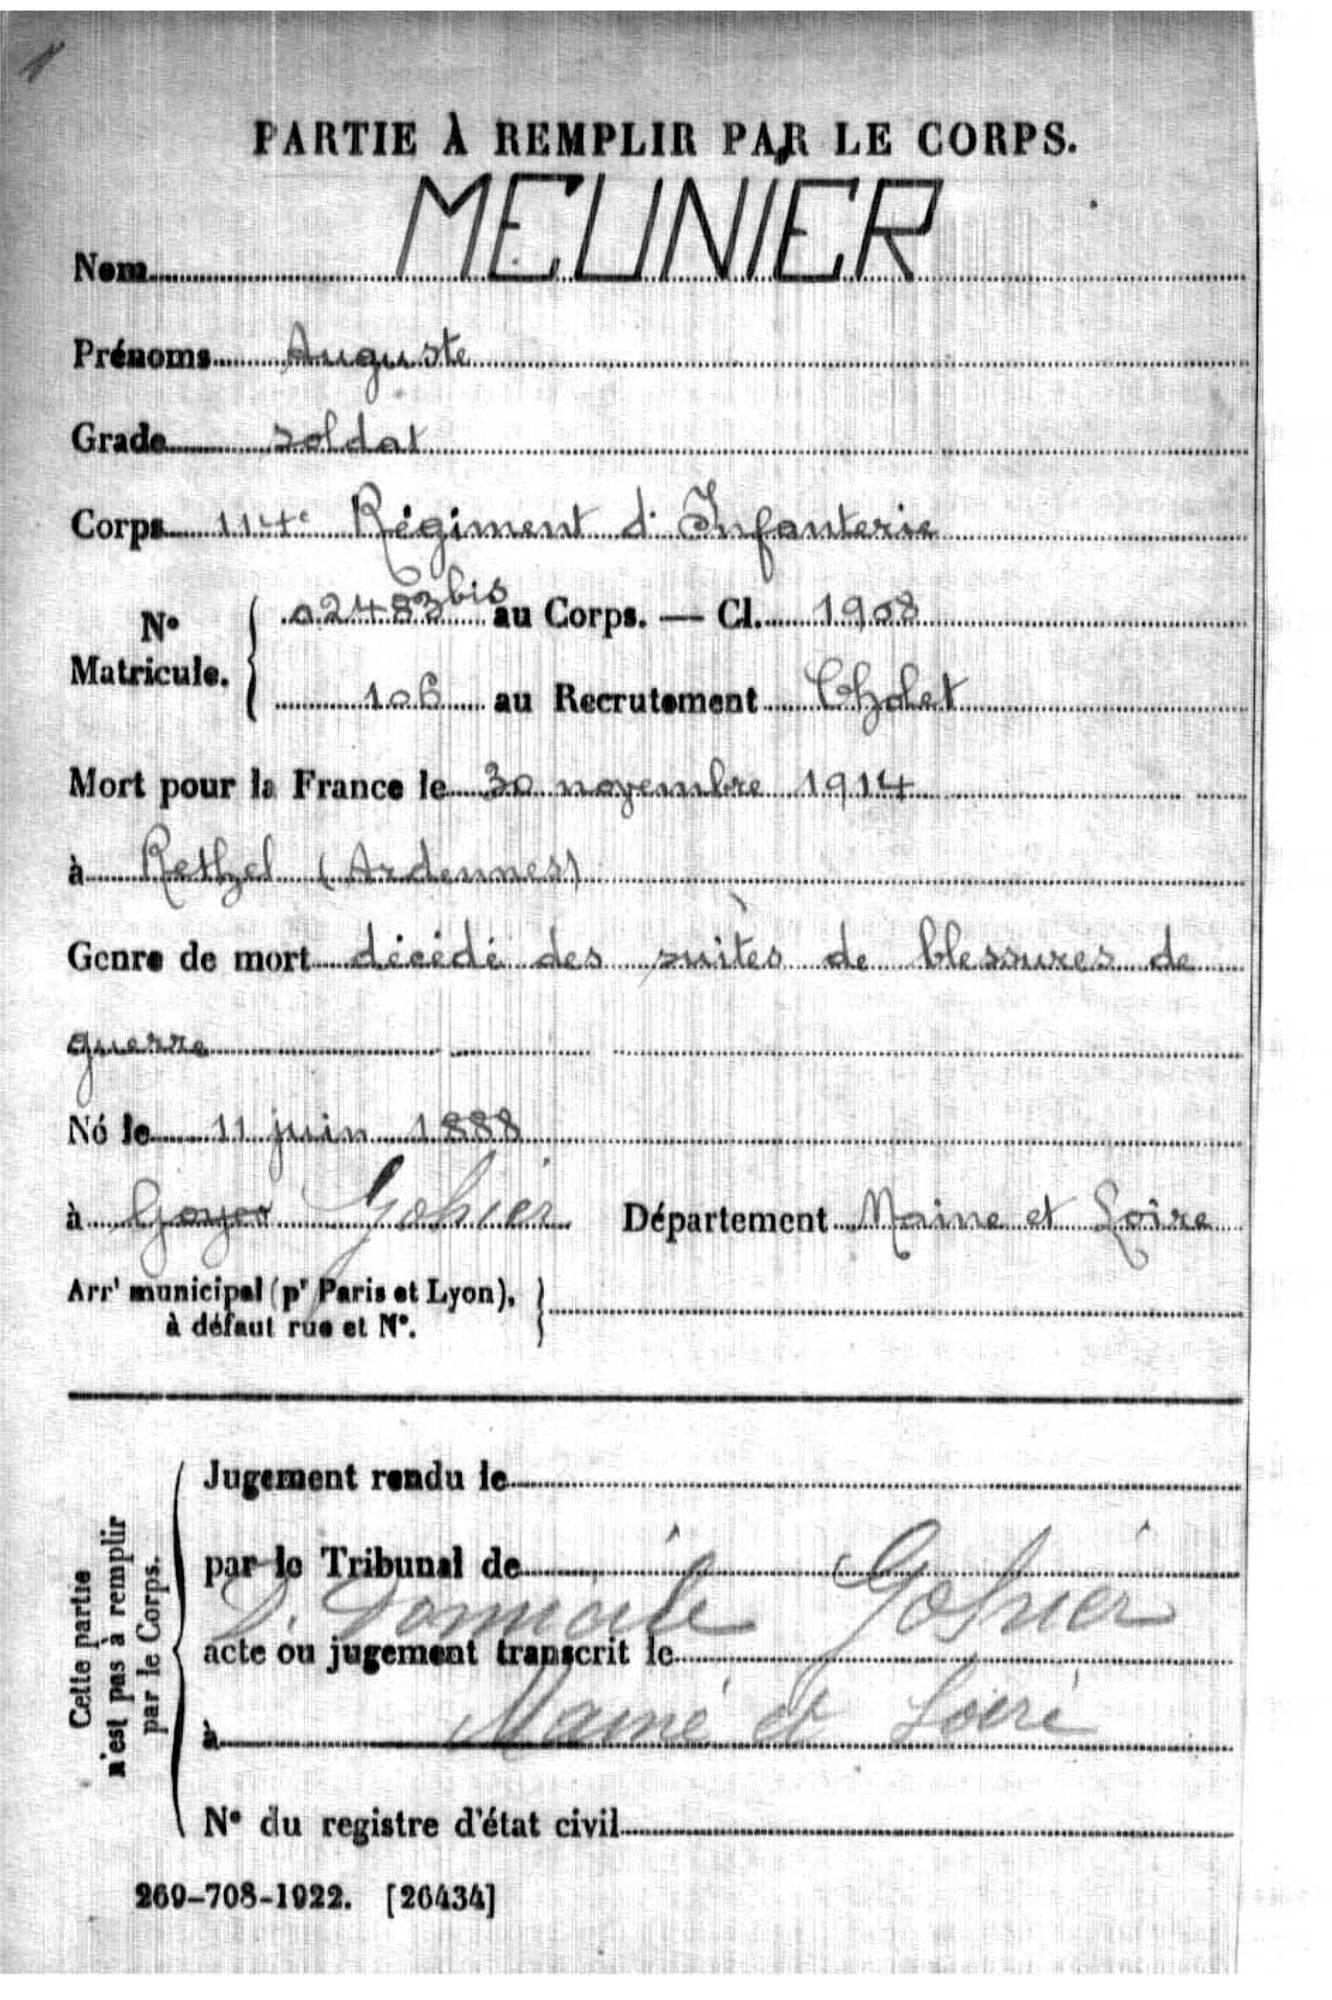 PARTIE À REMPLIR PAR LE CORPS.
Nom MEUNIER
Prénoms Auguste
Grade soldat
Corps 114e Régiment d'Infanterie
N° Matricule. 02483 bis au Corps. — Cl. 1908
106 au Recrutement Cholet
Mort pour la France le 30 novembre 1914
à Rethel (Ardennes)
Genre de mort décédé des suites de blessures de
guerre
Né le 11 juin 1888
à Gohier Département Maine et Loire
Arrt municipal (pr Paris et Lyon),
à défaut rue et N°.
Cette partie
n'est pas à remplir
par le Corps.
Jugement rendu le
par le Tribunal de
D. Domicile Gohier
acte ou jugement transcrit le
à Maine et Loire
N° du registre d'état civil
269-708-1922. [26434]